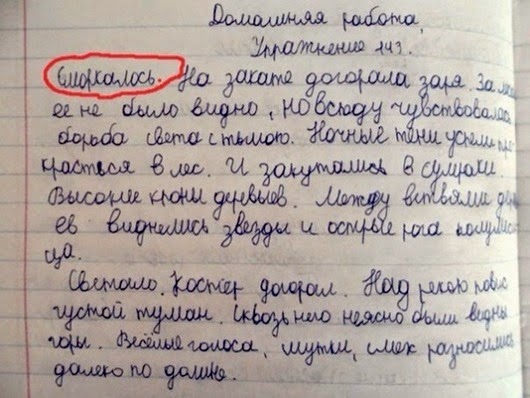 Домашняя работа.
Упражнение 143.
Сморкалось. На закате догорала заря. За ле
ее не было видно, но всюду чувствовалась
борьба света с тьмою. Ночные тени успели про
красться в лес. И закутались в сумраки.
Высокие крони деревьев. Между ветвями дер
ев виднелись звезды и острые рога полумеся
ца.
Светало. Костёр догорал. Над рекою повис
густой туман. Сквозь него неясно были видны
горы. Весёлые голоса, шутки, смех разносились
далеко по долине.